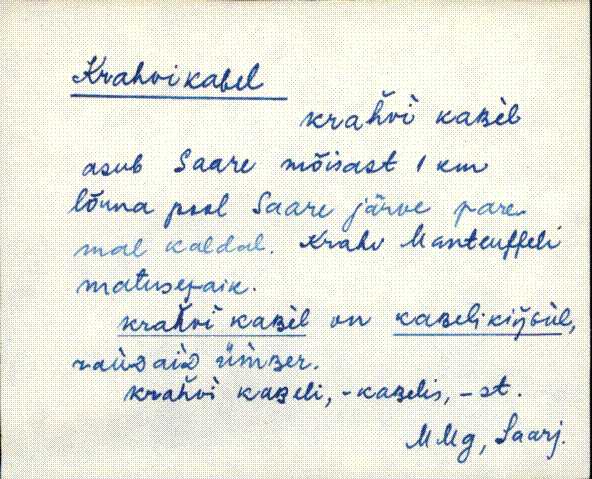 Krahvikabel
krahvì kaʙèl
asub Saare mõisast 1 km
lõuna pool Saare järve pare-
mal kaldal. Krahv Manteuffeli
matusepaik.
krahvì kaʙèl on kaʙelikiŋ̀ùl,
raùdaiᴅ ǜmʙer.
krahvì kaʙeli, -kaʙelis, -st.
MMg, Saarj.